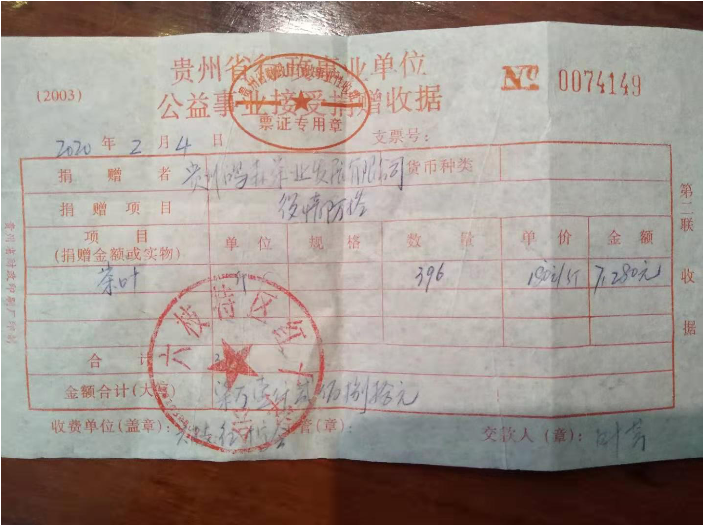 贵州省行政事业单位
公益事业接受捐赠收据
(2003)
No 0074149
票证专用章
2020 年 2 月 4 日 支票号：
捐赠者 贵州鸣森茶业发展有限公司 货币种类
捐赠项目 疫情防控
项目 单位 规格 数量 单价 金额
(捐赠金额或实物)
茶叶 斤 396 180元/斤 71,280元
合计
金额合计(大写) 柒万壹仟贰佰捌拾元
收费单位(盖章)： (章)： 交款人(章)：
六枝特区红十字会
第二联 收据
贵州省财政印刷厂印制